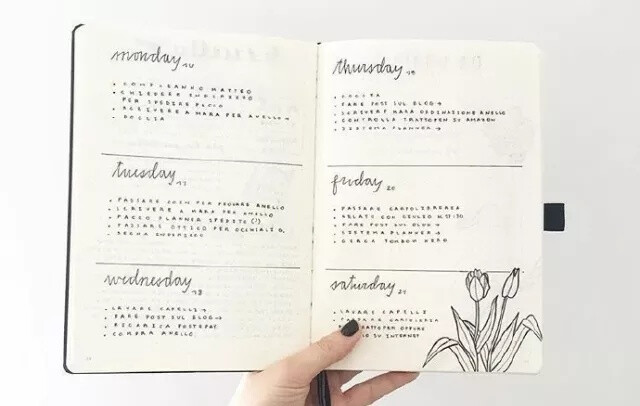 monday 16
• COMPLEANNO MATTEO
• CHIEDERE INDIRIZZO
PER SPEDIRE PACCO
• SCRIVERE A MARA PER ANELLO →
• DOCCIA
tuesday 17
• PASSARE PROVARE ANELLO
• SCRIVERE A MARA PER ANELLO
• PACCO PLANNER SPEDITO (!)
• PASSARE OTTICO PER OCCHIALI
wednesday 18
• LAVARE CAPELLI →
• FARE POST SUL BLOG →
• RICARICA POSTEPAY
• COMPRA ANELLO
thursday 19
• DOCCIA
• FARE POST SUL BLOG →
• SCRIVERE MARA ORDINAZIONE ANELLO
• CONTROLLA TRATTOPEN SU AMAZON
• SISTEMA PLANNER →
friday 20
• PASSARE CARTOLIBRERIA
• GELATO CON GIULIO H.17:30
• FARE POST SUL BLOG →
• SISTEMA PLANNER →
• CERCA TOMBOW NERO
saturday 21
• LAVARE CAPELLI
PER OPPURE
SU INTERNET